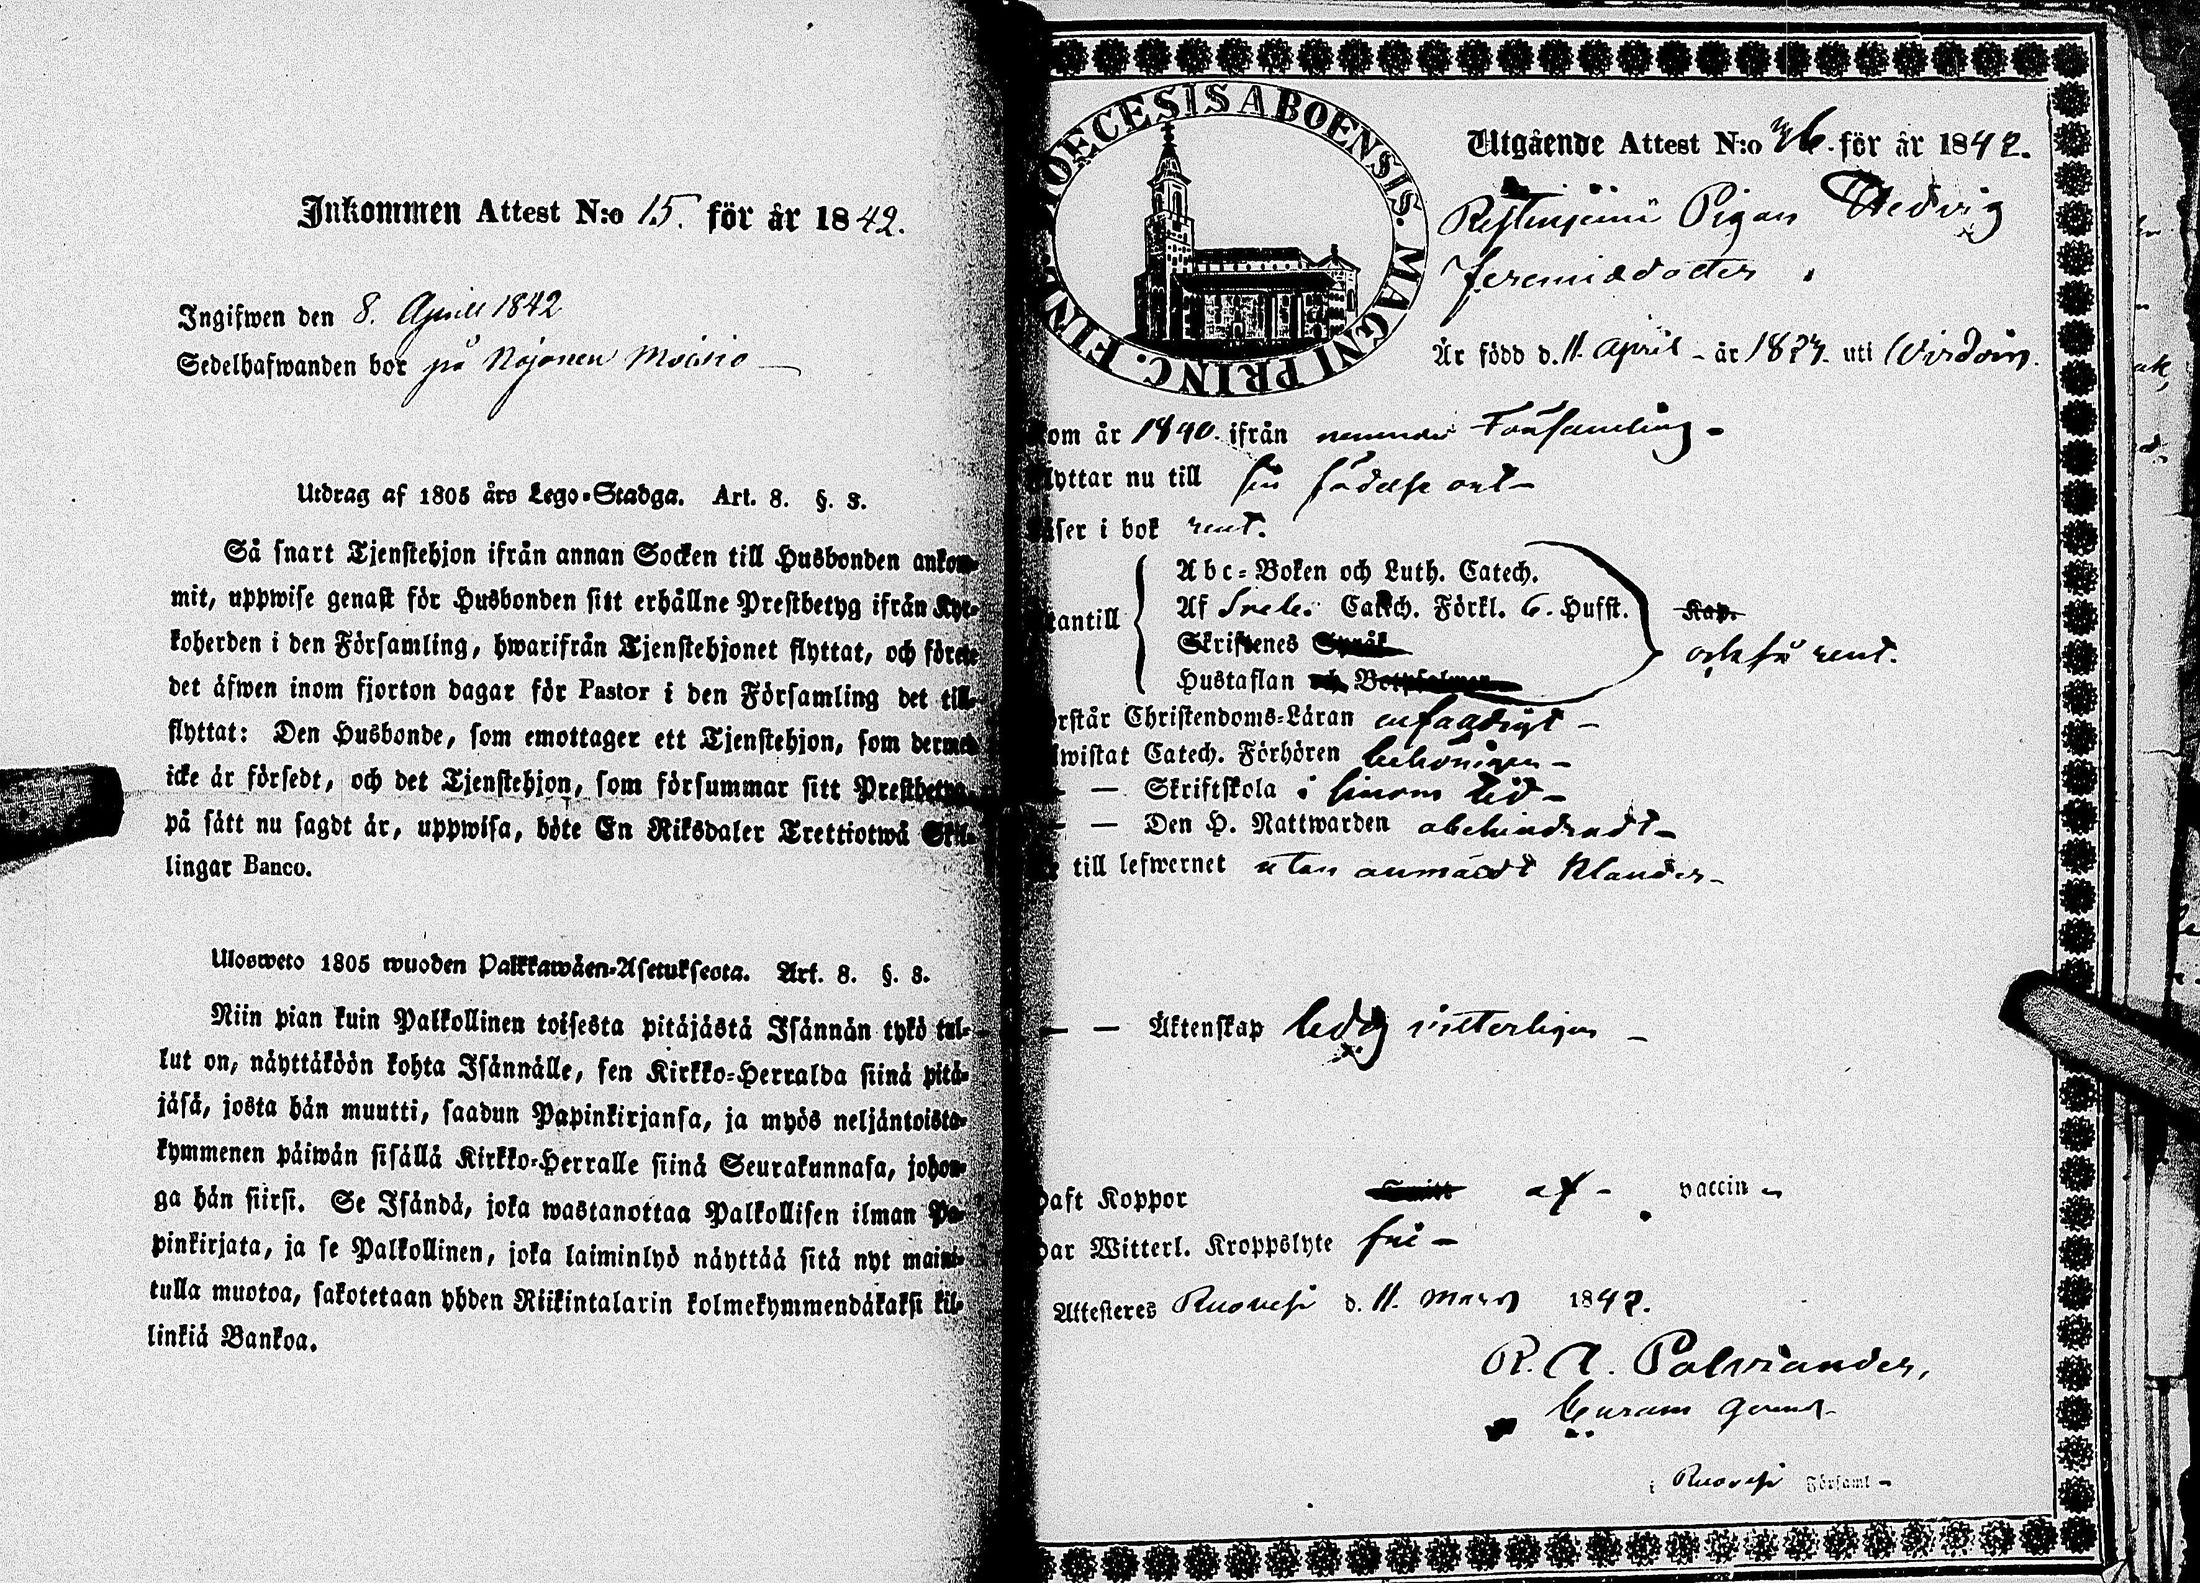 Inkommen Attest N:o 15. för år 1842.
Ingifwen den 8. Aprill 1842
Sedelhafwanden bor på Nojonen Moisio
Utdrag af 1805 års Lego-Stadga. Art. 8. §. 3.
Så snart Tjenstehjon ifrån annan Socken till Husbonden ankom-
mit, uppwise genast för Husbonden sitt erhållne Prestbetyg ifrån Kyr-
koherden i den Församling, hwarifrån Tjenstehjonet flyttat, och förete
det äfwen inom fjorton dagar för Pastor i den Församling det till-
flyttat: Den Husbonde, som emottager ett Tjenstehjon, som dermed
icke är försedt, och det Tjenstehjon, som försummar sitt Prestbetyg,
på sätt nu sagdt är, uppwisa, böte En Riksdaler Trettiotwå Skil-
lingar Banco.
Ulosweto 1805 wuoden Palkkawäen-Asetuksesta. Art. 8. §. 3.
Niin pian kuin Palkollinen toisesta pitäjästä Isännän tykö tul-
lut on, näyttäköön kohta Isännälle, sen Kirkko-Herralda siinä pitä-
jäsä, josta hän muutti, saadun Papinkirjansa, ja myös neljäntoista-
kymmenen päiwän sisällä Kirkko-Herralle siinä Seurakunnasa, johon-
ga hän siirsi. Se Isändä, joka wastanottaa Palkollisen ilman Pa-
pinkirjata, ja se Palkollinen, joka laiminlyö näyttää sitä nyt maini-
tulla muotoa, sakotetaan yhden Riikintalarin kolmekymmendäkaksi kil-
linkiä Bankoa.
DIOECESIS ABOENSIS. MAGNI PRINC. FINL.
Utgående Attest N:o 36. för år 1842.
Pigan Hedvig
Jeremiædotter
Är född d. 11. April - år 1827. uti Virdois.
kom år 1840. ifrån Församling -
flyttar nu till sin födelse ort -
läser i bok rent.
utantill
Abc-Boken och Luth. Catech.
Af Sveb. Catech. Förkl. 6. Hufst. Kap.
Skriftenes Språk
Hustaflan och Botpsalmer
och så rent.
Förstår Christendoms-Läran enfaldigt -
Bewistat Catech. Förhören behörigen -
— — Skriftskola i sinom tid -
— — Den H. Nattwarden obehindradt -
Är till lefwernet utan anmärdt klander -
— — Äktenskap ledig vitterligen -
Haft Koppor af - vaccin -
Har Witterl. Kroppslyte frie -
Attesteres Ruovesi d. 11. Mars 1842.
R. A. Palviander,
Curam gerens
i Ruovesi Församl -